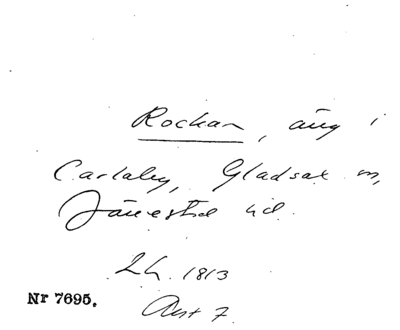 Rockan, äng i
Carlaby, Gladsax sn,
Järrestad hd.
L h. 1813
Akt 7
Nr 7695.